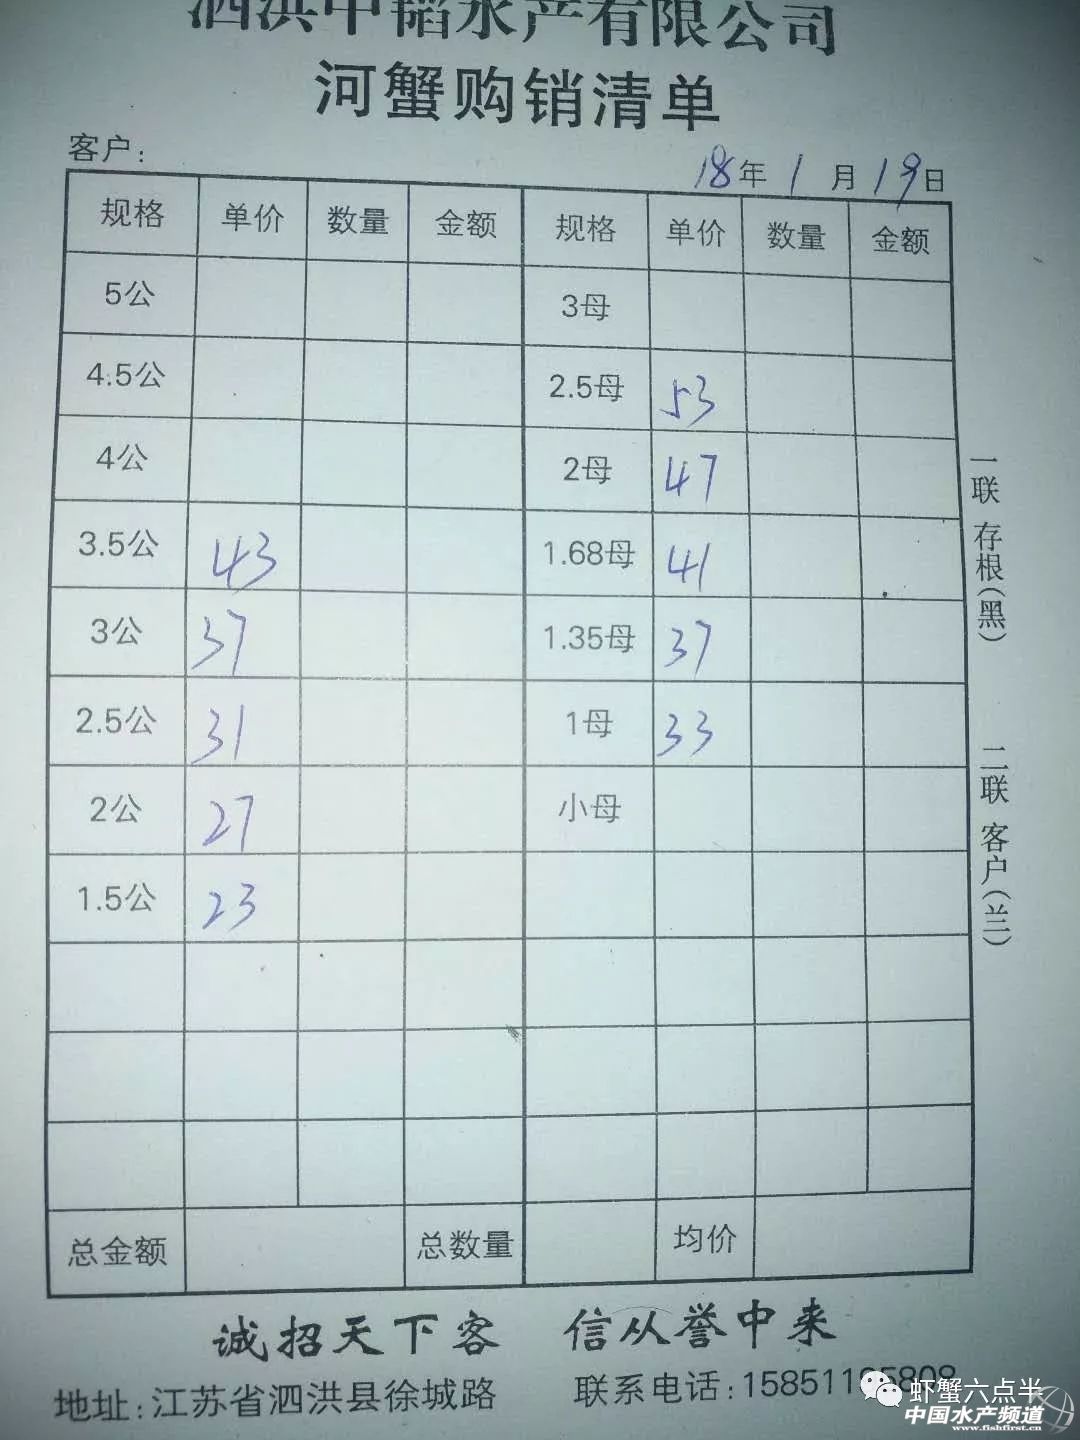 泗洪中韬水产有限公司
河蟹购销清单
客户:
18年1月19日
规格 单价 数量 金额 规格 单价 数量 金额
5公 3母
4.5公 2.5母 53
4公 2母 47
3.5公 43 1.68母 41
3公 37 1.35母 37
2.5公 31 1母 33
2公 27 小母
1.5公 23
总金额 总数量 均价
一联 存根(黑)
二联 客户(兰)
诚招天下客 信从誉中来
地址:江苏省泗洪县徐城路 联系电话:
虾蟹六点半
中国水产频道
www.fishfirst.cn